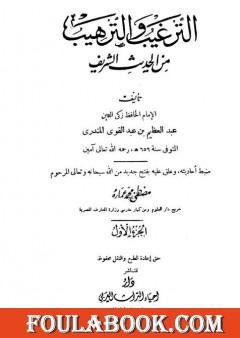 الترغيب والترهيب
من الحديث الشريف
تأليف
الإمام الحافظ زكى الدين
عبد العظيم بن عبد القوى المنذرى
المتوفى سنة ٦٥٦ هـ، رحمه الله تعالى آمين
ضبط أحاديثه، وعلق عليه بفتح جديد من الله سبحانه وتعالى المرحوم
مصطفى محمد عماره
خريج دار العلوم ومن كبار مدرسى وزارة المعارف المصرية
الجزء الأول
حق إعادة الطبع والنقل محفوظ
الناشر
دار
إحياء التراث العربى
FOULABOOK.COM